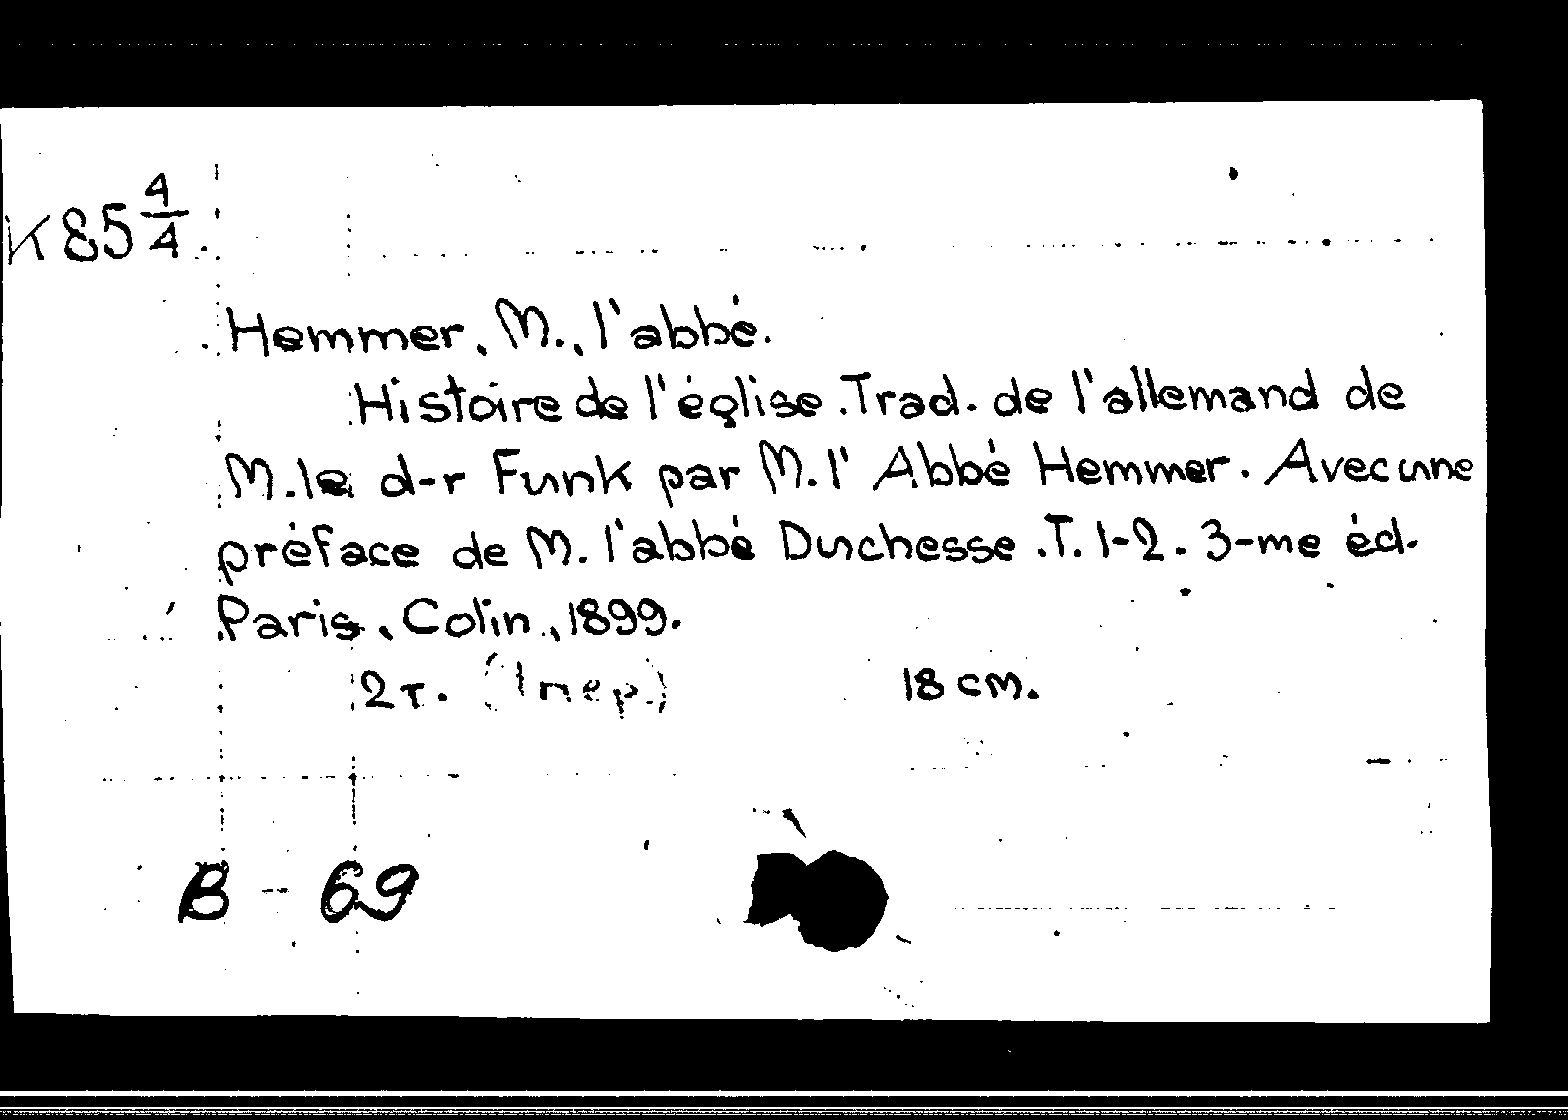 K 85 4/4.
Hemmer, M., l'abbé.
Histoire de l'église. Trad. de l'allemand de
M. le d-r Funk par M. l'Abbé Hemmer. Avec une
préface de M. l'abbé Duchesse. T. 1-2. 3-me éd.
Paris, Colin, 1899.
2 т. (1 пер.) 18 cm.
B - 69